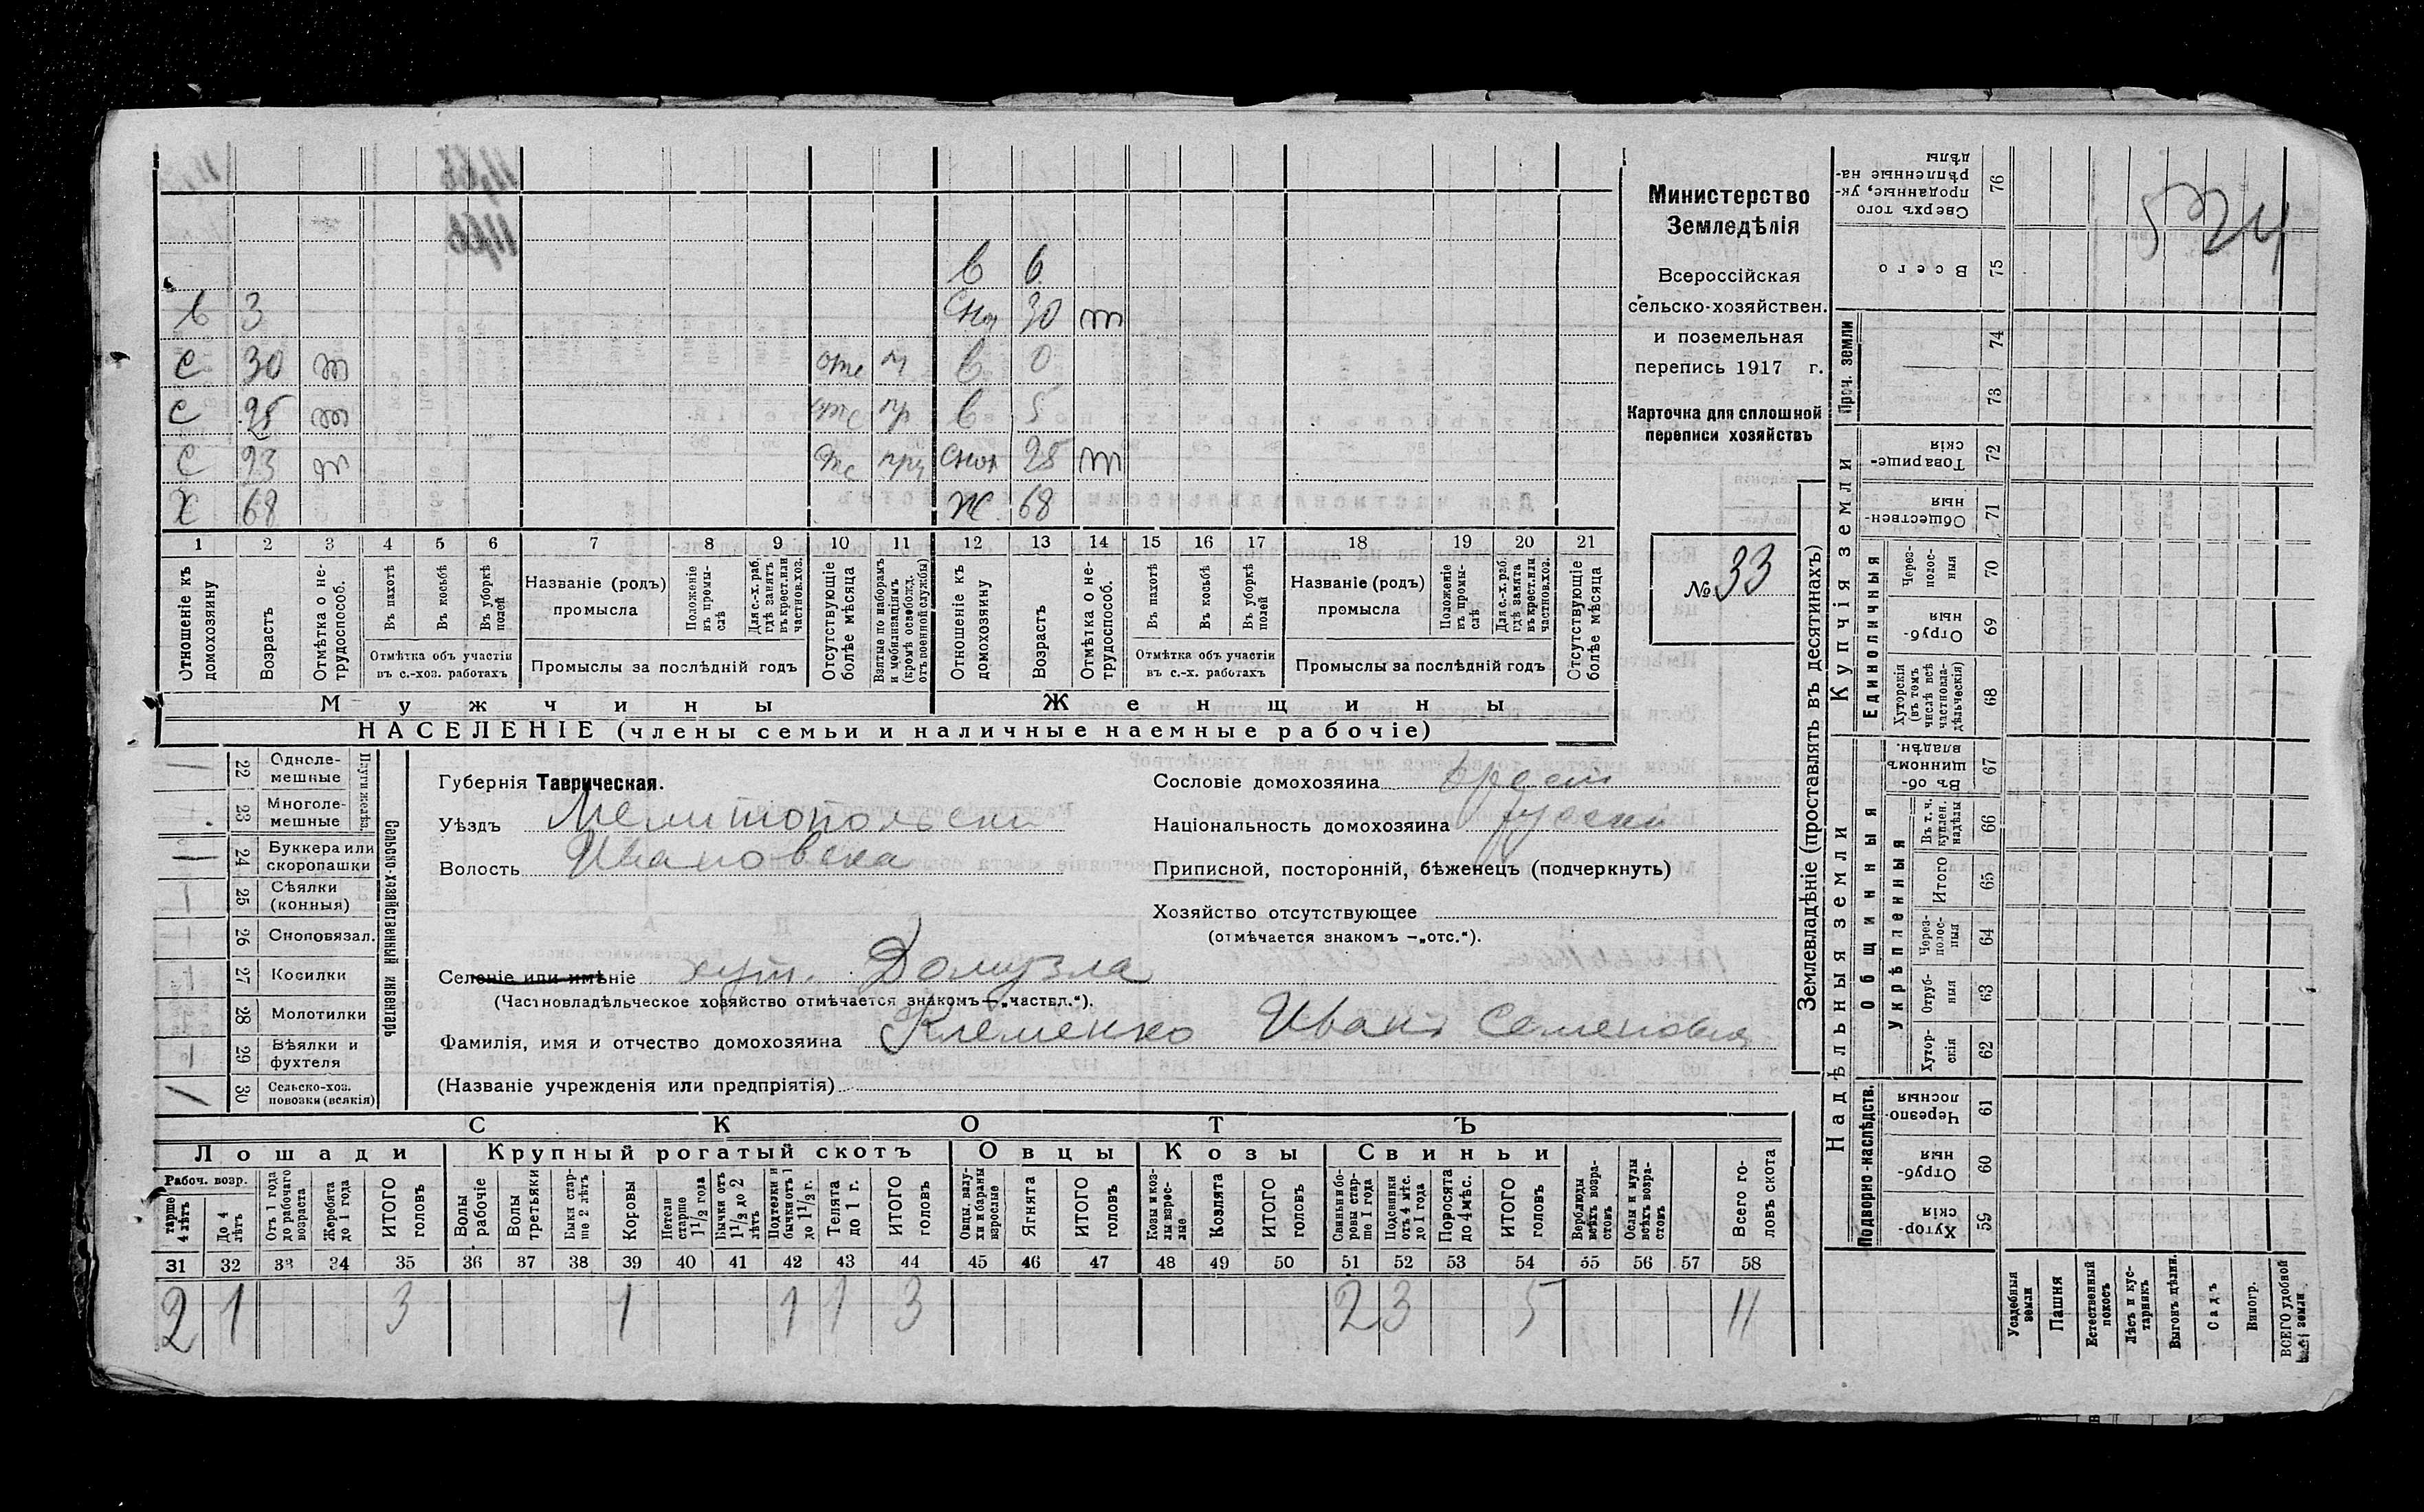 Министерство
Земледѣлія
Всероссійская
сельско-хозяйствен.
и поземельная
перепись 1917 г.
Карточка для сплошной
переписи хозяйствъ
№ 33
524
в 6
в 3 Сноха 30 т
С 30 т отс м в 0
С 25 т отс пр в 5
С 23 т отс пр сноха 25 т
Х 68 Ж 68
1 2 3 4 5 6 7 8 9 10 11 12 13 14 15 16 17 18 19 20 21
Отношеніе къ домохозяину
Возрастъ
Отмѣтка о нетрудоспособ.
Въ пахотѣ
Въ косьбѣ
Въ уборкѣ полей
Отмѣтка объ участіи
въ с.-хоз. работахъ
Названіе (родъ)
промысла
Положеніе въ промыслѣ
Для с.-х. раб. гдѣ занятъ въ крест. или частнов. хоз.
Промыслы за послѣдній годъ
Отсутствующіе болѣе мѣсяца
Взятые по наборамъ и мобилизаціямъ (кромѣ освобожд. отъ военной службы)
Отношеніе къ домохозяину
Возрастъ
Отмѣтка о нетрудоспособ.
Въ пахотѣ
Въ косьбѣ
Въ уборкѣ полей
Отмѣтка объ участіи
въ с.-х. работахъ
Названіе (родъ)
промысла
Положеніе въ промыслѣ
Для с.-х. раб. гдѣ занята въ крест. или частнов. хоз.
Промыслы за послѣдній годъ
Отсутствующіе болѣе мѣсяца
Мужчины Женщины
НАСЕЛЕНІЕ (члены семьи и наличные наемные рабочіе)
Сельско-хозяйственный инвентарь
Плуги желѣз.
22 Однолемешные
23 Многолемешные
24 Буккера или скоропашки
25 Сѣялки (конныя)
26 Сноповязал.
27 Косилки
28 Молотилки
29 Вѣялки и фухтеля
30 Сельско-хоз. повозки (всякія)
Губернія Таврическая.
Уѣздъ Мелитопольски
Волость Ивановска
Селеніе или имѣніе хут. Домузла
(Частновладѣльческое хозяйство отмѣчается знакомъ—„частвл.“).
Фамилія, имя и отчество домохозяина Клеменко Иванъ Семеновъ
(Названіе учрежденія или предпріятія)
Сословіе домохозяина крест
Національность домохозяина руски
Приписной, посторонній, бѣженецъ (подчеркнуть)
Хозяйство отсутствующее
(отмѣчается знакомъ —„отс.“).
СКОТЪ
Лошади Крупный рогатый скотъ Овцы Козы Свиньи
Рабоч. возр.
тарше 4 лѣтъ
До 4 лѣтъ
Отъ 1 года до рабочаго возраста
Жеребята до 1 года
ИТОГО головъ
Волы рабочіе
Волы третьяки
Быки старше 2 лѣтъ
Коровы
Нетели старше 1 1/2 года
Бычки отъ 1 1/2 до 2 лѣтъ
Подтелки и бычки отъ 1 до 1 1/2 г.
Телята до 1 г.
ИТОГО головъ
Овцы, валухи и бараны взрослые
Ягнята
ИТОГО головъ
Козы и козлы взрослые
Козлята
ИТОГО головъ
Свиньи и боровы старше 1 года
Подсвинки отъ 4 мѣс. до 1 года
Поросята до 4 мѣс.
ИТОГО головъ
Верблюды всѣхъ возрастовъ
Ослы и мулы всѣхъ возрастовъ
Всего головъ скота
31 32 33 34 35 36 37 38 39 40 41 42 43 44 45 46 47 48 49 50 51 52 53 54 55 56 57 58
2 1 3 1 1 1 3 2 3 5 11
Землевладѣніе (проставлять въ десятинахъ)
Надѣльныя земли
Купчія земли
Проч. земли
Подворно-наслѣдств.
Общинныя
Укрѣпленныя
Единоличныя
Сверхъ того проданные, укрѣпленные надѣлы 76
Всего 75
74
73
Товарищескія 72
Общественныя 71
Черезполосныя 70
Отрубныя 69
Хуторскія (въ томъ числѣ всѣ частновладѣльческія) 68
Въ общинномъ владѣн. 67
Въ т. ч. куплен. надѣлы 66
Итого 65
Черезполосныя 64
Отрубныя 63
Хуторскія 62
Черезполосныя 61
Отрубныя 60
Хуторскія 59
Усадебныя земли
Пашня
Естественный покосъ
Лѣсъ и кустарникъ
Выгонъ цѣлин.
Садъ
Виногр.
ВСЕГО удобной земли